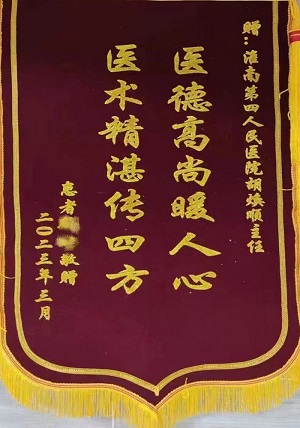 赠：淮南第四人民医院胡焕顺主任
医德高尚暖人心
医术精湛传四方
患者 敬赠
二〇二三年三月